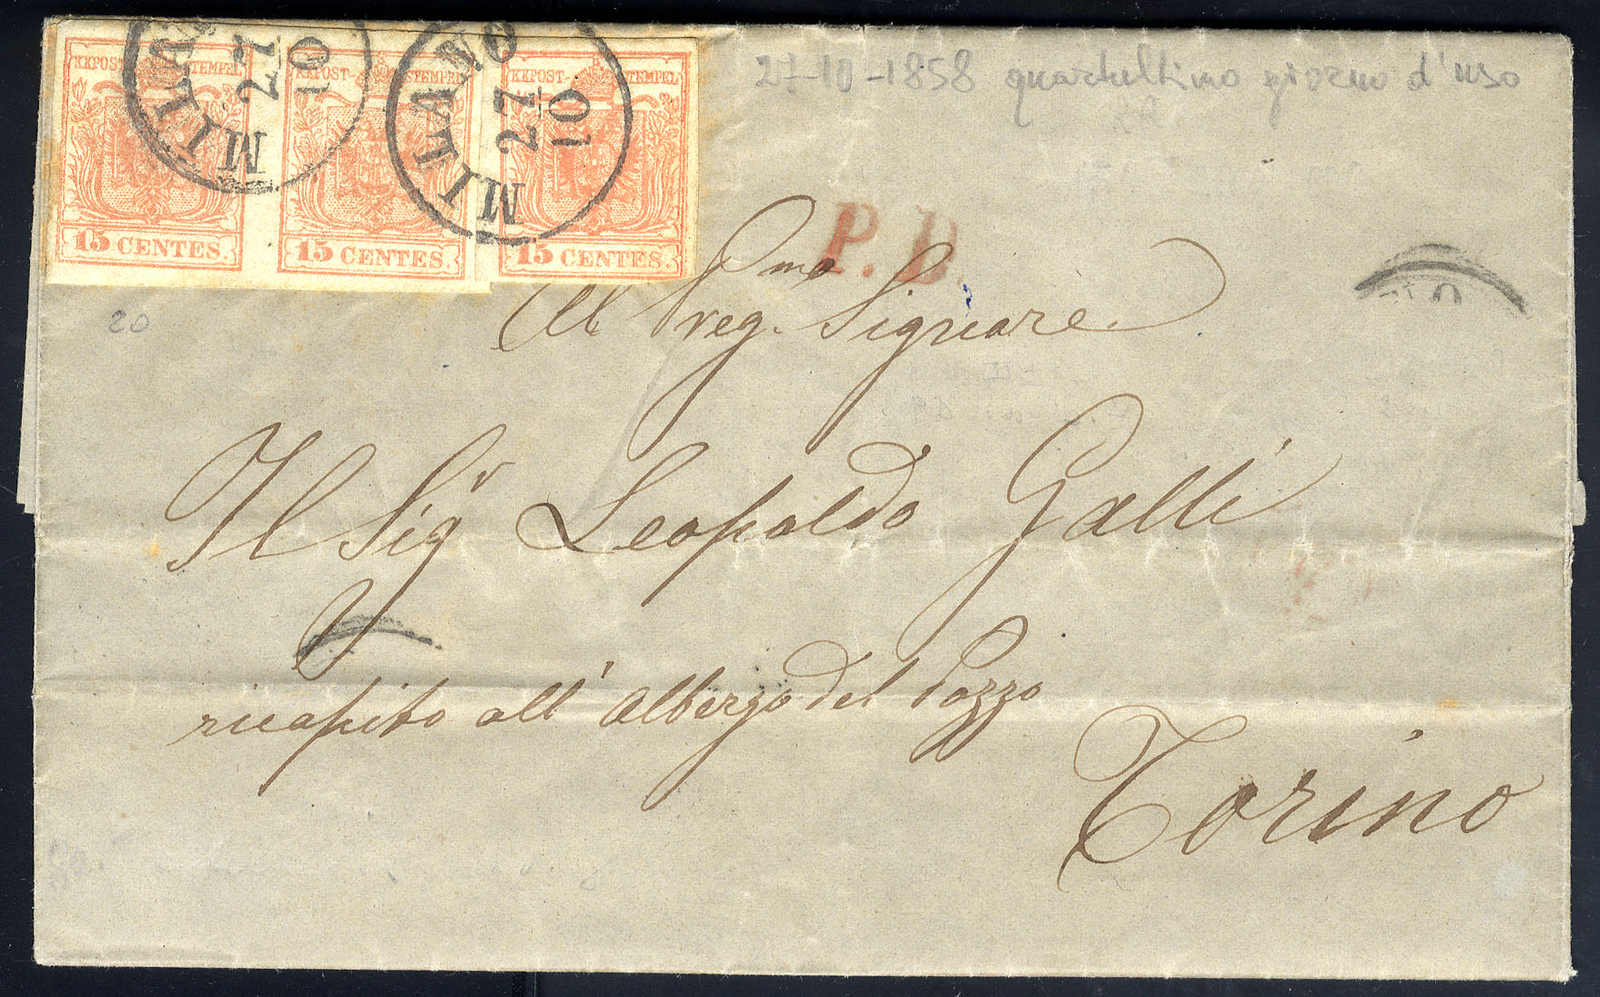 KKPOST-STEMPEL KKPOST-STEMPEL KKPOST-STEMPEL
MILANO 27 10
MILANO 27 10
15 CENTES. 15 CENTES. 15 CENTES.
27-10-1858 quartultimo giorno d'uso
RR
P.D.
20
Al Preg.mo Signore
Il Sigr Leopoldo Galli
ricapito all'Albergo del Pozzo
Torino